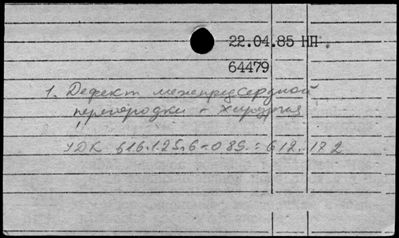 22.04.85 НП.
64479
1. Дефект межпредсердной
перегородки - хирургия
УДК 616.125.6-089:612.172